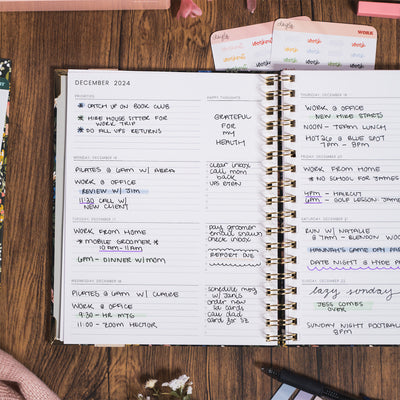 DECEMBER 2024
PRIORITIES
* CATCH UP ON BOOK CLUB
* HIRE HOUSE SITTER FOR
WORK TRIP
* DO ALL UPS RETURNS
HAPPY THOUGHTS
GRATEFUL
FOR
MY
HEALTH
MONDAY, DECEMBER 16
PILATES @ 6AM W/
WORK @ OFFICE
REVIEW W/ JIM
11:30 CALL W/
NEW CLIENT
clear inbox
call mom
back
TUESDAY, DECEMBER 17
WORK FROM HOME
* MOBILE GROOMER *
10AM-11AM
6PM - DINNER W/MOM
pay groomer
email shawn
check inbox
REPORT DUE
WEDNESDAY, DECEMBER 18
PILATES @ 6AM W/ CLAIRE
WORK @ OFFICE
9:30 - HR MTG
11:00 - ZOOM HECTOR
schedule mtg
w/ Janis
order new
id cards
call dad
card for SZ
THURSDAY, DECEMBER 19
WORK @ OFFICE
NEW HIRE STARTS
NOON - TEAM LUNCH
@ BLUE SPOT
7PM - 9PM
FRIDAY, DECEMBER 20
WORK FROM HOME
* NO SCHOOL FOR JAMES
4PM - HAIRCUT
6PM - GOLF LESSON JAME
SATURDAY, DECEMBER 21
RUN W/ NATALIE
@ 7AM - BLENDON WOO
HANNAH'S GAME DAY PA
DATE NIGHT @ HYDE P
SUNDAY, DECEMBER 22
lazy sunday
JESS COMES
OVER
SUNDAY NIGHT FOOTBAL
8PM
WORK